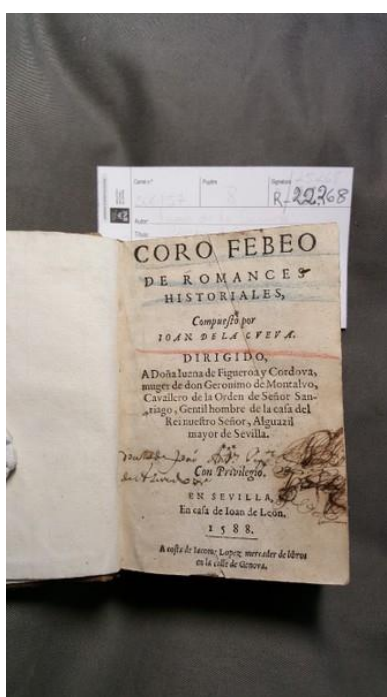 Carné n.º
Pupitre
Signatura
8
R-22268
Autor
Título
CORO FEBEO
DE ROMANCES
HISTORIALES,
Compuesto por
IOAN DE LA CVEVA.
DIRIGIDO,
A Doña Iuana de Figueroa y Cordova,
muger de don Geronimo de Montalvo,
Cavallero de la Orden de Señor San-
tiago, Gentil hombre de la casa del
Rei nuestro Señor, Alguazil
mayor de Sevilla.
Con Privilegio.
EN SEVILLA,
En casa de Ioan de Leon.
1588.
A costa de Iacome Lopez mercader de libros
en la calle de Genova.